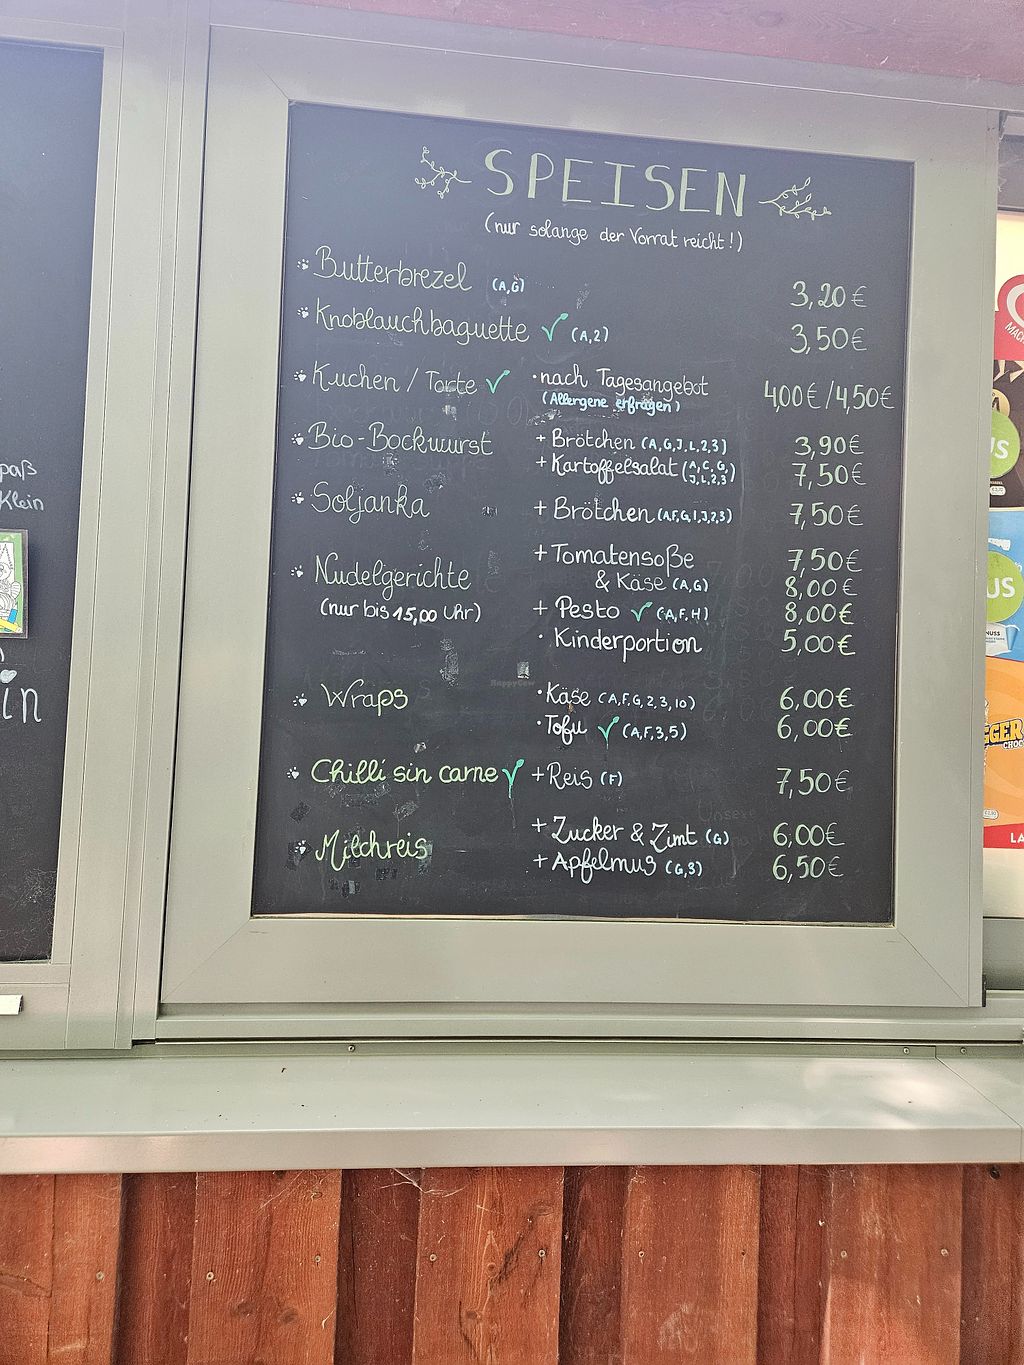 SPEISEN
(nur solange der Vorrat reicht!)
Butterbrezel (A,G) 3,20€
Knoblauchbaguette (A,2) 3,50€
Kuchen / Torte · nach Tagesangebot 4,00€/4,50€
(Allergene erfragen)
Bio-Bockwurst + Brötchen (A,G,J,L,2,3) 3,90€
+ Kartoffelsalat (A,C,G, J,L,2,3) 7,50€
Soljanka + Brötchen (A,F,G,I,J,2,3) 7,50€
Nudelgerichte + Tomatensoße 7,50€
& Käse (A,G) 8,00€
(nur bis 15,00 Uhr) + Pesto (A,F,H) 8,00€
· Kinderportion 5,00€
Wraps · Käse (A,F,G,2,3,10) 6,00€
· Tofu (A,F,3,5) 6,00€
Chilli sin carne + Reis (F) 7,50€
Milchreis + Zucker & Zimt (G) 6,00€
+ Apfelmus (G,3) 6,50€
paß
Klein
in